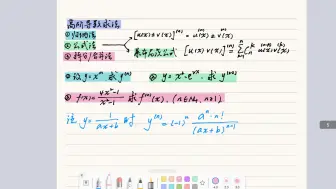 高阶导数求法
① 归纳法
② 公式法 [u(x)±v(x)]^(n) = u^(n)(x) ± v^(n)(x)
③ 拆分/合并法 莱布尼茨公式 [u(x)·v(x)]^(n) = Σ C_n^k u^(n-k)(x) v^(k)(x)
① 设 y=x^n 求 y^(n) ② y=x²·e^2x 求 y^(n)
③ f(x)= (4x²-1)/(x²-1) 求 f^(n)(x), (n∈N+, n≥1)
注 y= 1/(ax+b) 时 y^(n)=(-1)^n a^n·n!/(ax+b)^(n+1)